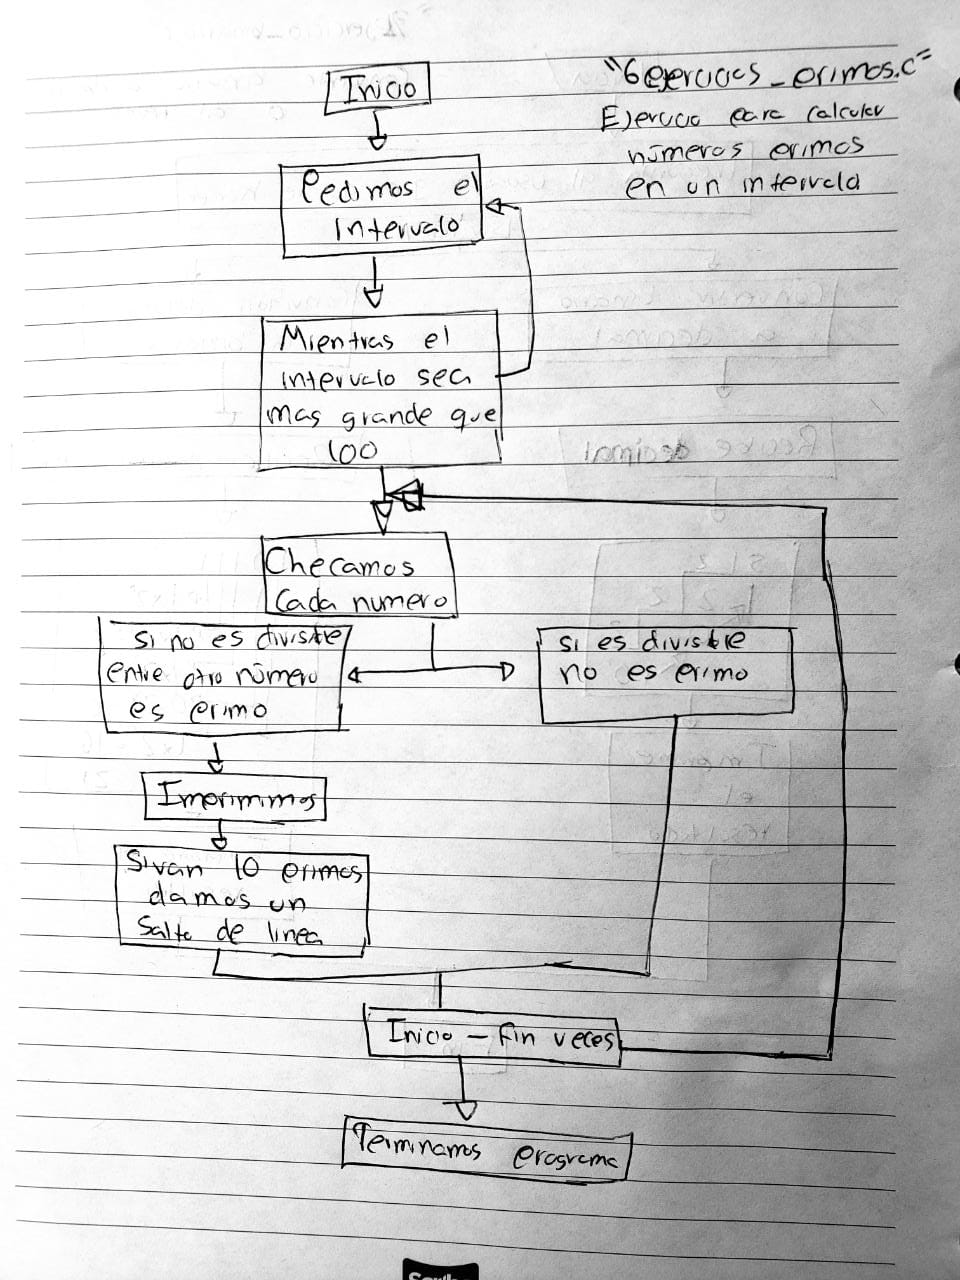 "6 ejercicios_primos.c"
Ejercicio para calcular
números primos
en un intervalo
Inicio
Pedimos el
Intervalo
Mientras el
intervalo sea
mas grande que
100
Checamos
Cada numero
si no es divisible
entre otro número
es primo
si es divisible
no es primo
Imprimimos
Si van 10 primos
damos un
Salto de linea
Inicio - fin veces
Terminamos programa